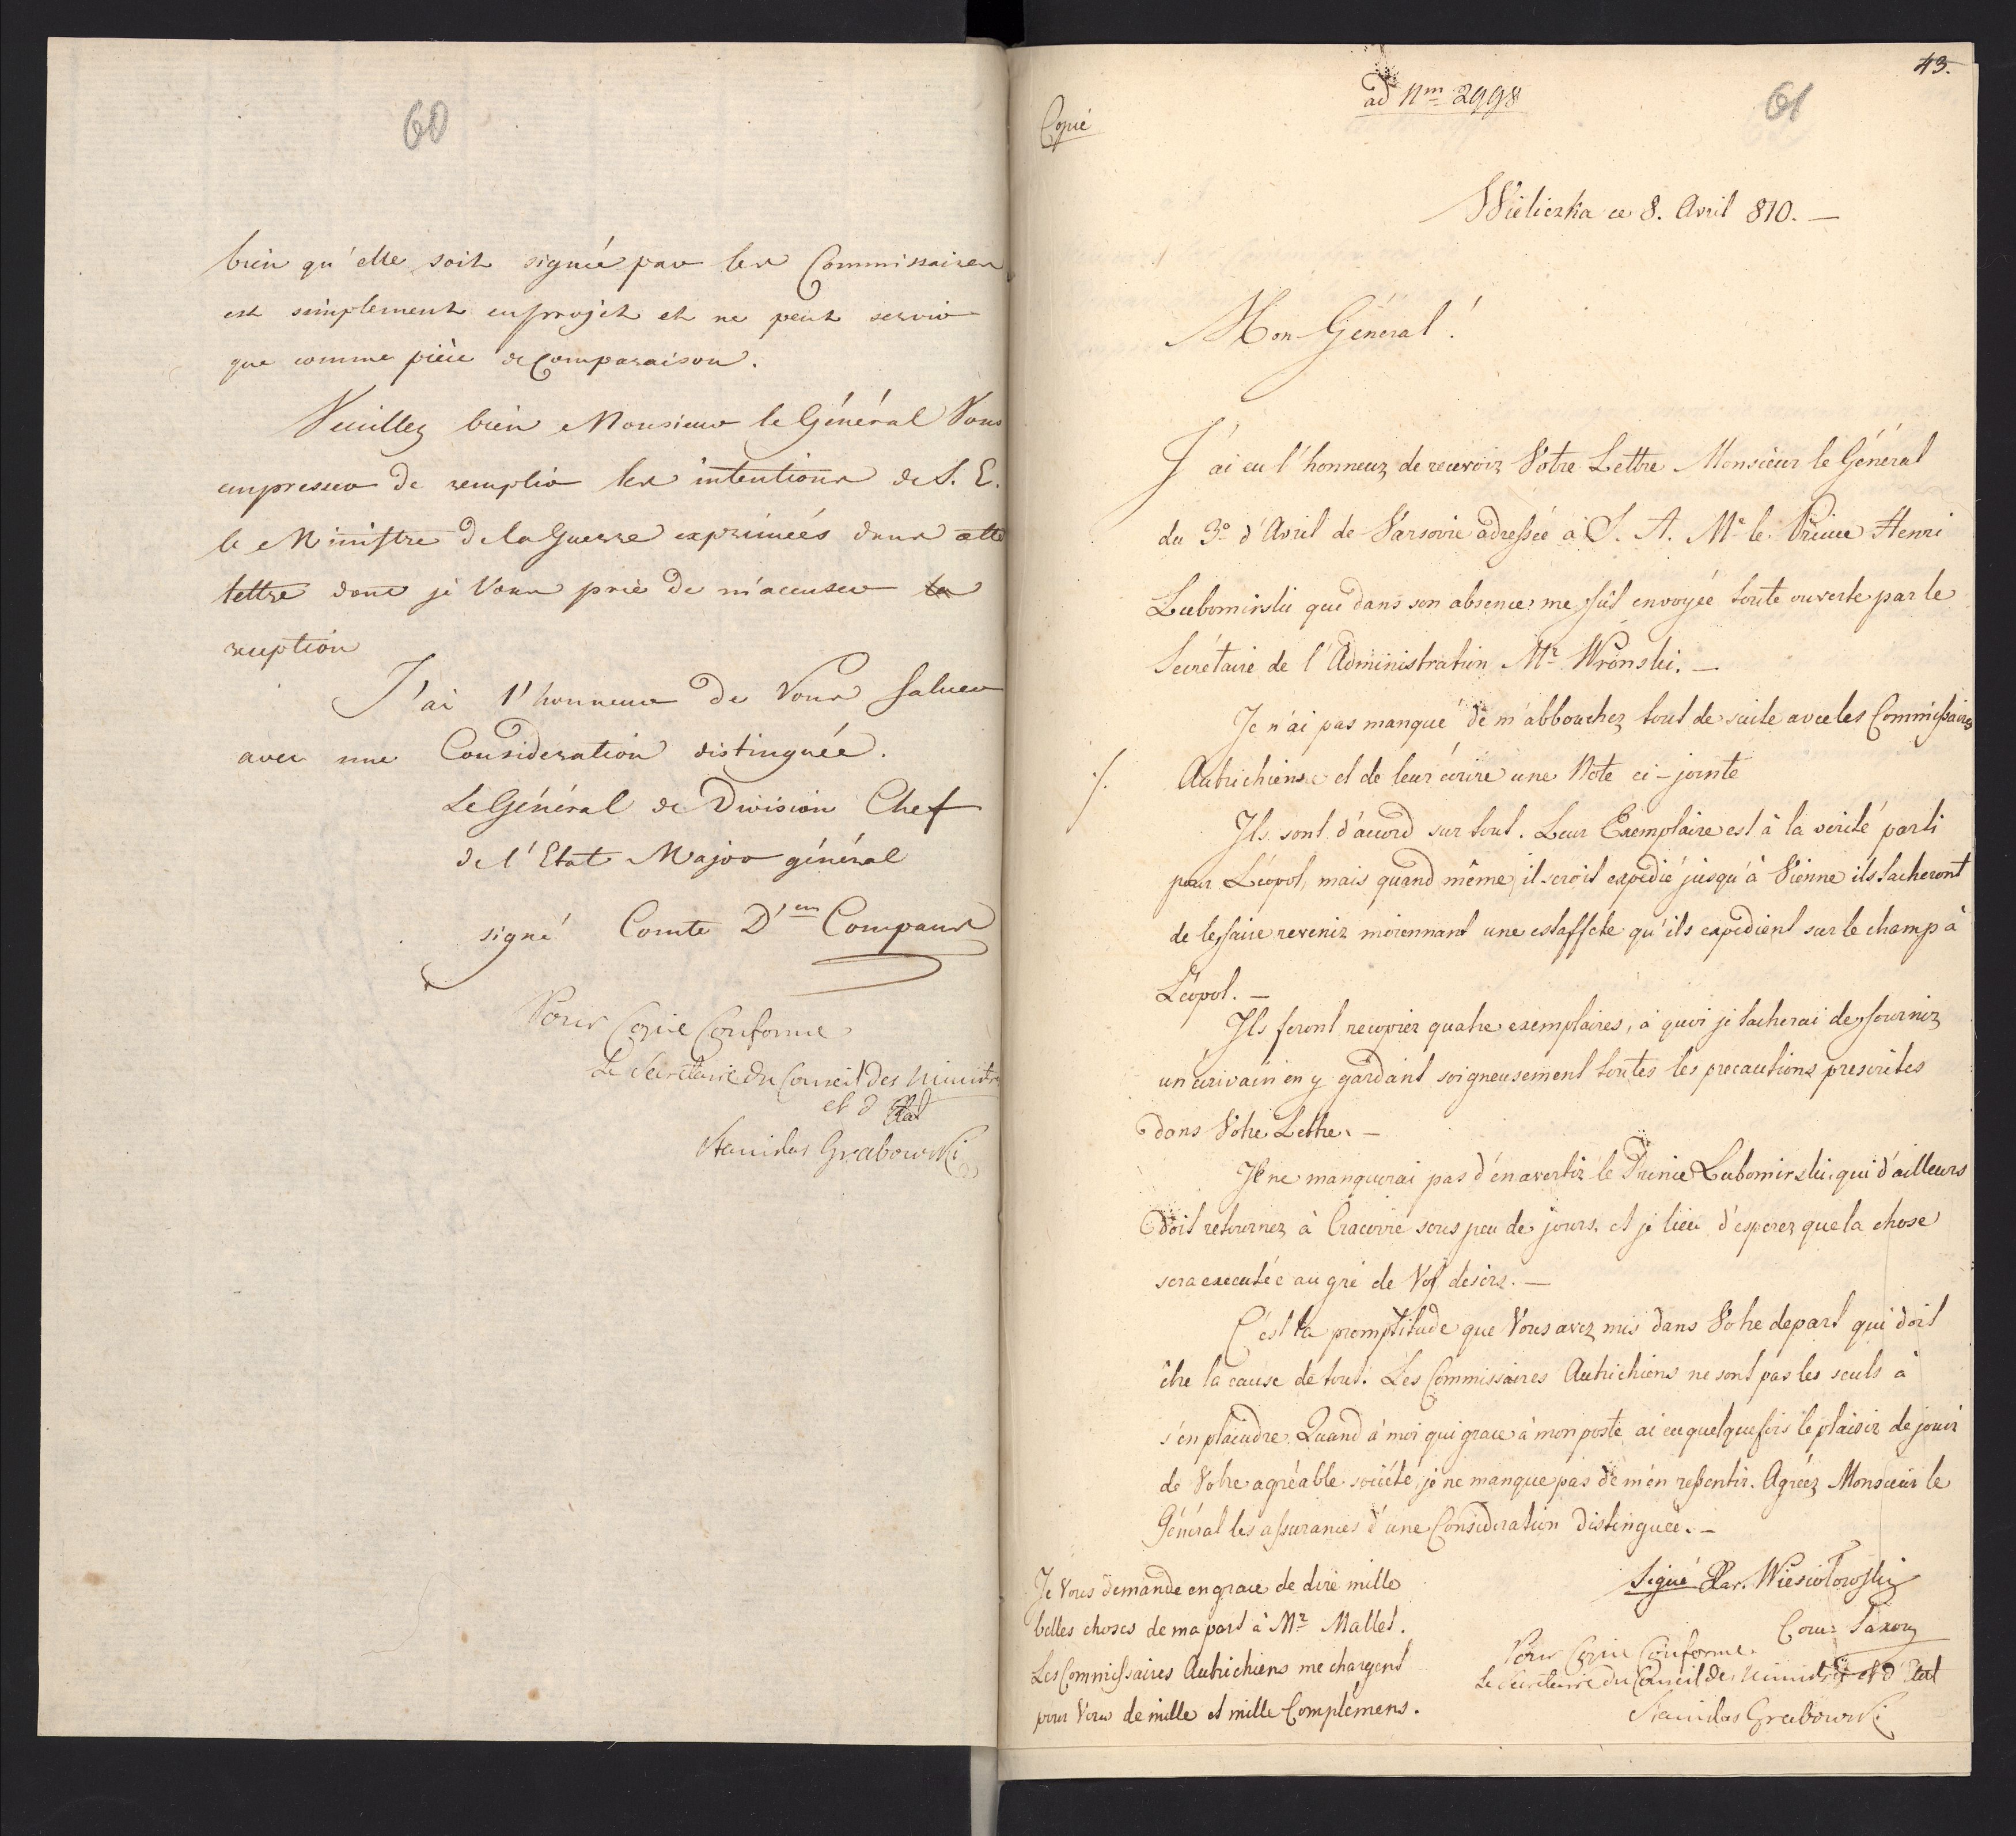 60
bien qu'elle soit signée par les Commissaires
est simplement en projet et ne peut servir
que comme pièce de Comparaison.
Veuillez bien Monsieur le Général Vous
empresser de remplir les intentions de S. E.
le Ministre de la Guerre exprimées dans cette
lettre dont je Vous prie de m'accuser la
reception
J'ai l'honneur de Vous saluer
avec une Consideration distinguée.
Le Général de Division Chef
de l'Etat Major général
signé Comte D'en Compans
Pour Copie Conforme
Le Secretaire du Conseil des Ministres
et d'Etat
Stanislas Grabowski
43.
ad Nm 2998
61
Copie
Wieliczka ce 8. Avril 810. —
Mon Général!
J'ai eu l'honneur de recevoir Votre Lettre Monsieur le Général
du 3e d'Avril de Varsovie adressée à S. A. Mr le Prince Henri
Lubomirski qui dans son absence me fût envoyée toute ouverte par le
Secrétaire de l'Administration Mr Wronski. —
Je n'ai pas manqué de m'abboucher tout de suite avec les Commissaires
./. Autrichiens et de leur écrire une Note ci-jointe
Ils sont d'accord sur tout. Leur Exemplaire est à la verité parti
pour Léopol, mais quand même, il seroit expedié jusqu'à Vienne ils tacheront
de le faire revenir moiennant une estaffete qu'ils expedient sur le champ à
Léopol. —
Ils feront recopier quatre exemplaires, à quoi je tacherai de fournir
un écrivain en y gardant soigneusement toutes les precautions prescrites
dans Votre Lettre. —
Je ne manquerai pas d'en avertir le Prince Lubomirski, qui d'ailleurs
doit retourner à Cracovie sous peu de jours, et je lieu d'esperer que la chose
sera executée au gré de Vos desirs. —
C'est la promptitude que Vous avez mis dans Votre depart qui doit
être la cause de tout. Les Commissaires Autrichiens ne sont pas les seuls à
s'en plaindre. Quand à moi qui grace à mon poste ai eu quelquefois le plaisir de jouir
de Votre agréable société, je ne manque pas de m'en ressentir. Agréez Monsieur le
Général les assurances d'une Consideration distinguée. —
Signé Xar. Wiesiolowski
Com: Saxon
Je Vous demande en grace de dire mille
belles choses de ma part à Mr Mallet.
Les Commissaires Autrichiens me chargent
pour Vous de mille et mille Complémens.
Pour Copie Conforme
Le Secretaire du Conseil des Ministres et d'Etat
Stanislas Grabowski